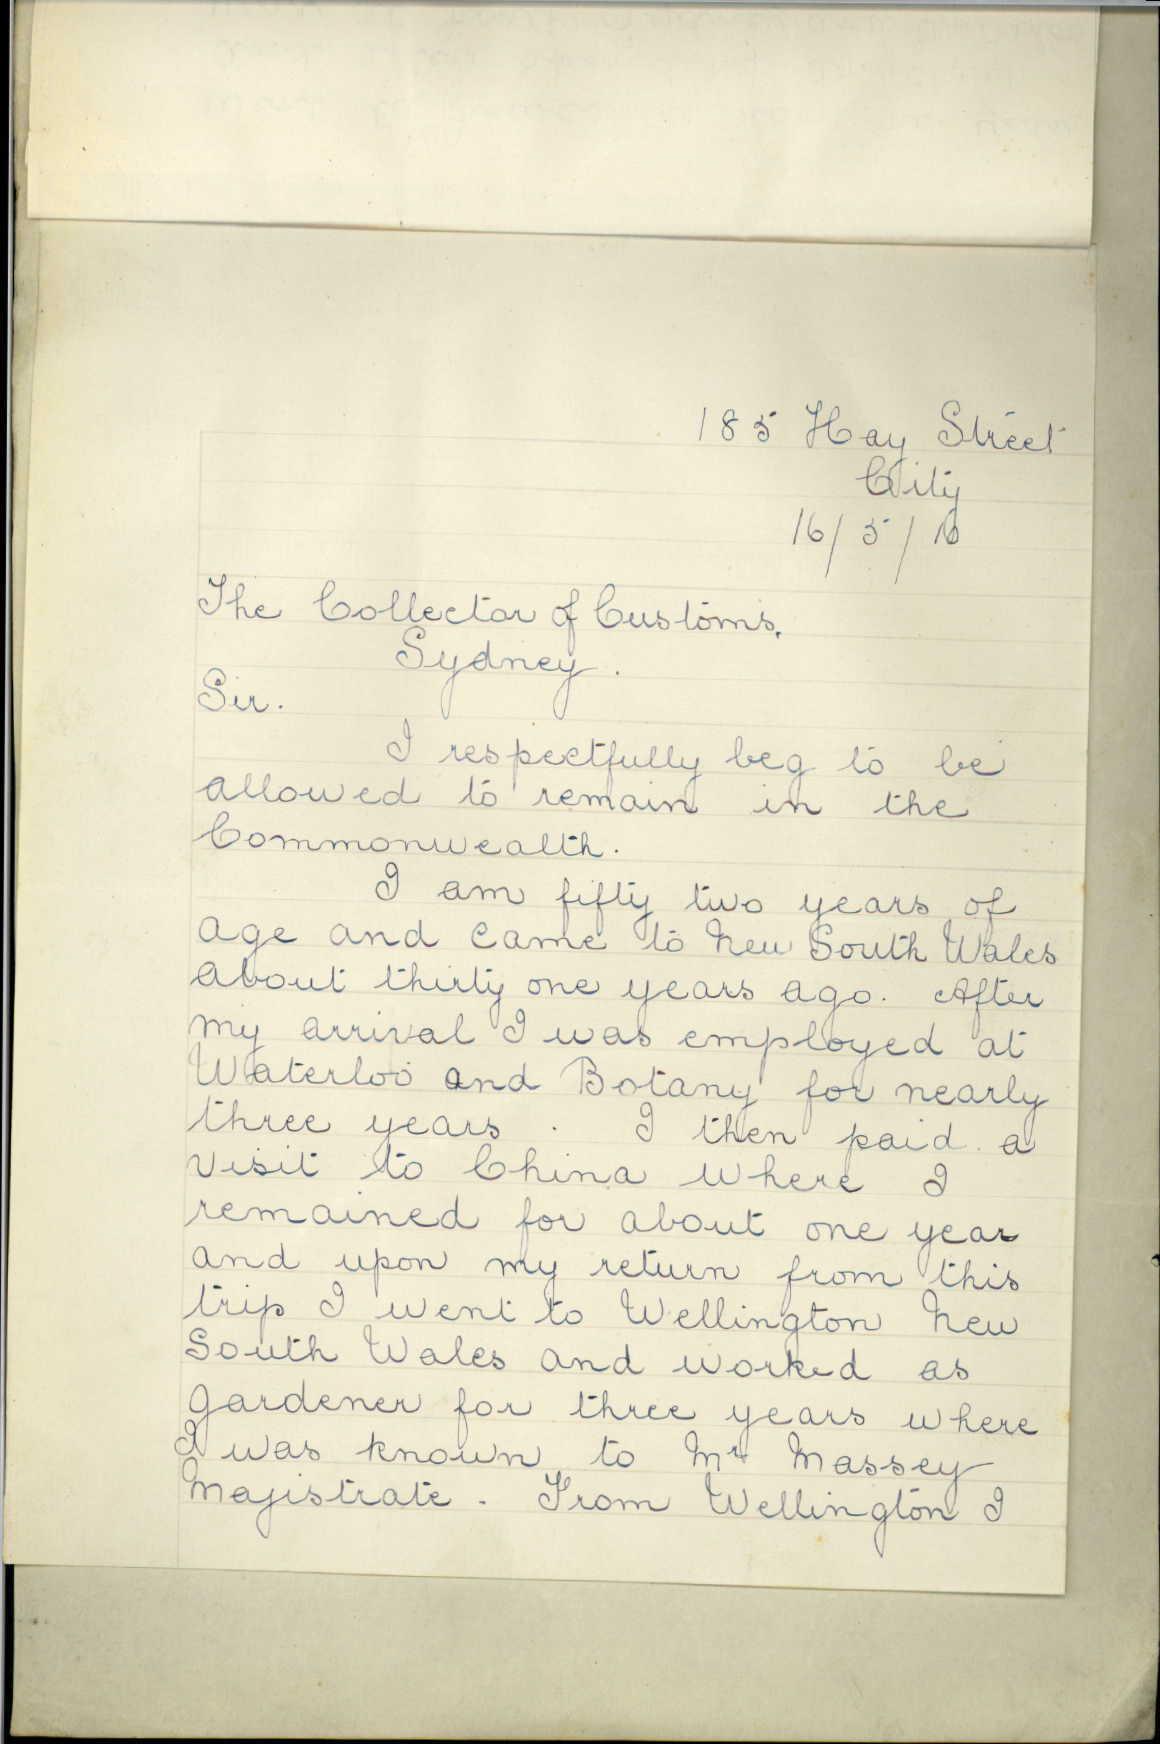 185 Hay Street
City
16/5/10
The Collector of Customs.
Sydney.
Sir.
I respectfully beg to be
allowed to remain in the
Commonwealth.
I am fifty two years of
age and came to New South Wales
about thirty one years ago. After
my arrival I was employed at
Waterloo and Botany for nearly
three years. I then paid a
visit to China where I
remained for about one year
and upon my return from this
trip I went to Wellington New
South Wales and worked as
gardener for three years where
I was known to Mr Massey
Majistrate. From Wellington I